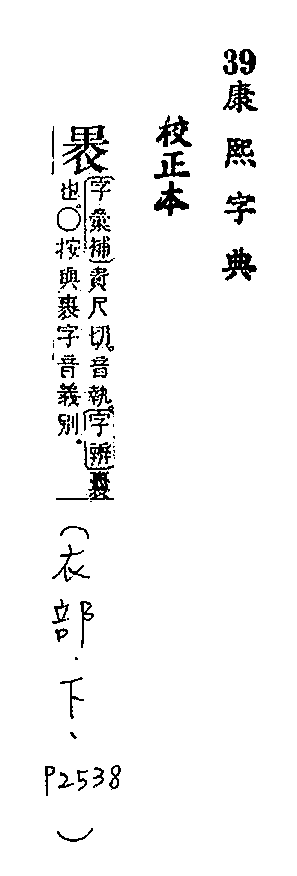 39康熙字典
校正本
褁
字彙補責尺切。音執。字辨裹
也。○按與裹字音義別。
(衣部.下、P2538)